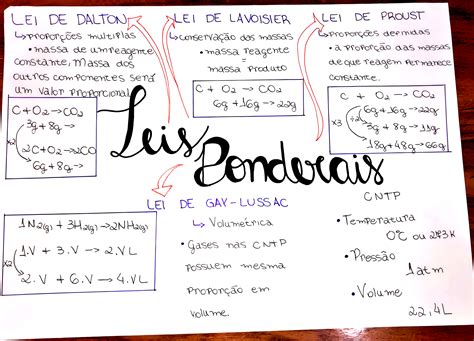 LEI DE DALTON
↳ PROPORÇÕES MULTIPLAS
• massa de um reagente
constante, Massa dos
outros componentes será
um valor proporcional
C + O2 → CO2
3g + 8g →
x2
2C + O2 → 2CO
6g + 8g →
LEI DE LAVOISIER
↳ Conservação das massas
• massa reagente
=
massa produto
C + O2 → CO2
6g + 16g → 22g
LEI DE PROUST
↳ PROPORÇÕES definidas
• a proporção das massas
de que reagem permanece
constante.
C + O2 → CO2
6g + 16g → 22g
x3 ÷2 3g + 8g → 11g
18g + 48g → 66g
Leis
Ponderais
LEI DE GAY-LUSSAC
↳ Volumétrica
• Gases nas CNTP
possuem mesma
proporção em
volume.
1N2(g) + 3H2(g) → 2NH2(g)
1.V + 3.V → 2.VL
x2
2.V + 6.V → 4.VL
CNTP
• Temperatura
0°C ou 273K
• Pressão
1atm
• Volume
22,4L